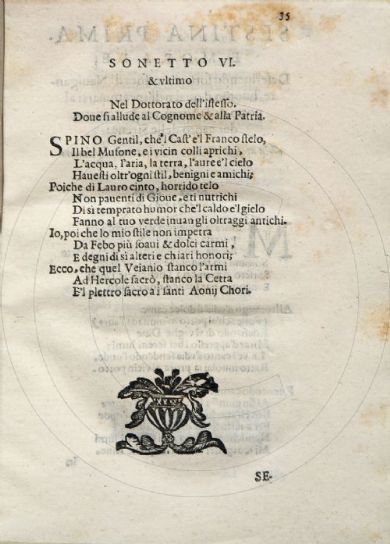 35
SONETTO VI.
& vltimo
Nel Dottorato dell'istesso.
Doue si allude al Cognome & alla Patria.
SPINO Gentil, che'i Cast' e'l Franco stelo,
Il bel Musone, e i vicin colli aprichi,
L'acqua, l'aria, la terra, l'aure e'l cielo
Hauesti oltr'ogni stil, benigni e amichi;
Poiche di Lauro cinto, horrido telo
Non pauenti di Gioue, e ti nutrichi
Di si temprato humor che'l caldo e'l gielo
Fanno al tuo verde inuan gli oltraggi antichi.
Io, poi che lo mio stile non impetra
Da Febo più soaui & dolci carmi,
E degni di sì alteri e chiari honori;
Ecco, che quel Veianio stanco l'armi
Ad Hercole sacrò, stanco la Cetra
E'l plettro sacro a i santi Aonij Chori.
SE-